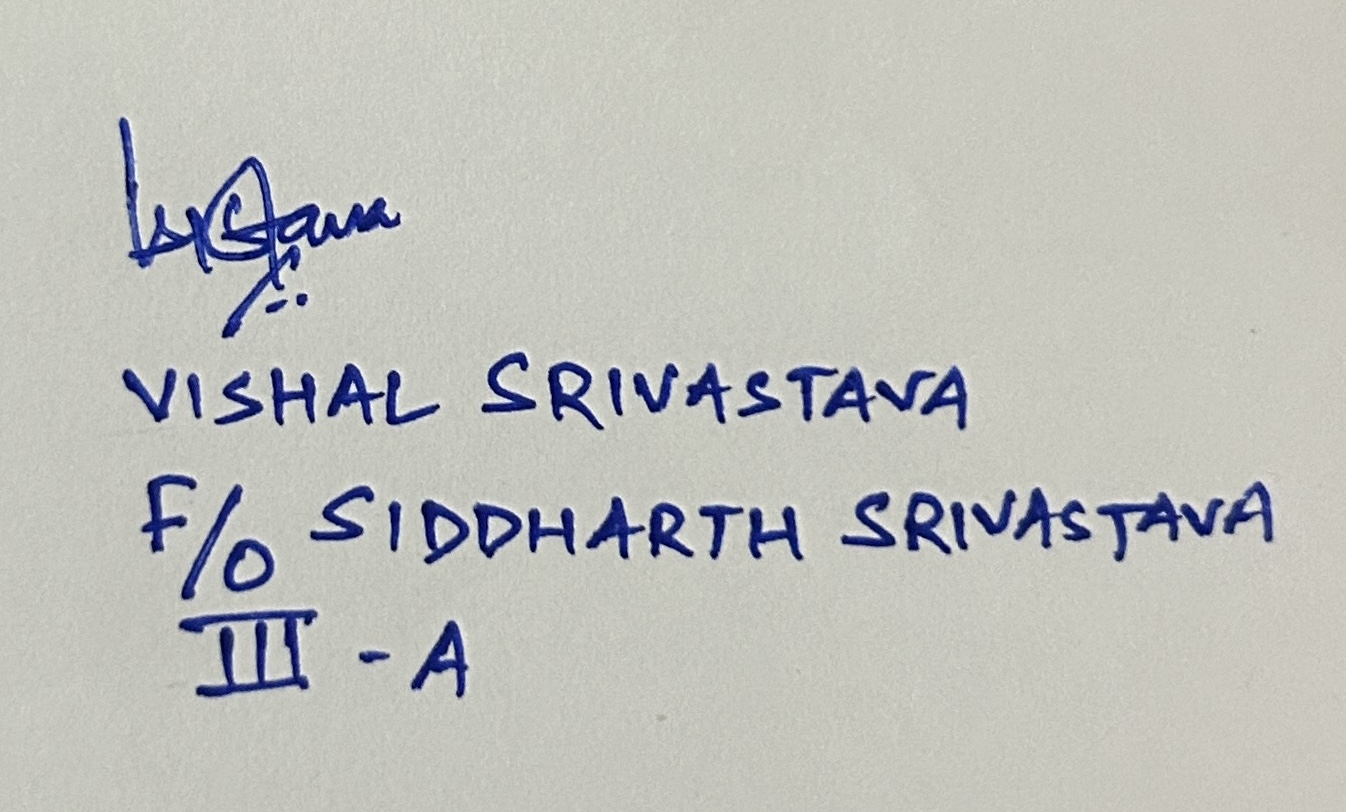 VISHAL SRIVASTAVA
F/O SIDDHARTH SRIVASTAVA
III - A